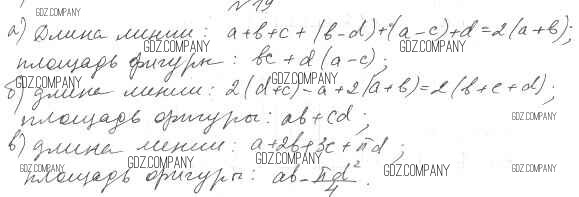 № 19
GDZ.COMPANY
а) Длина линии: a+b+c+(b-d)+(a-c)+d=2(a+b);
GDZ.COMPANY GDZ.COMPANY
площадь фигуры: bc+d(a-c);
GDZ.COMPANY GDZ.COMPANY
б) длина линии: 2(d+c)-a+2(a+b)=2(b+c+d);
площадь фигуры: ab+cd;
GDZ.COMPANY GDZ.COMPANY
в) длина линии: a+2b+3c+πd;
GDZ.COMPANY GDZ.COMPANY GDZ.COMPANY GDZ.COMPANY
площадь фигуры: ab-πd²/4.